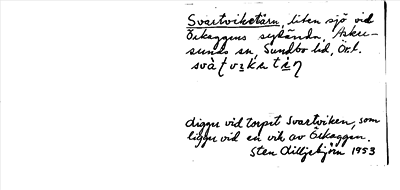 Svartvikstärn, liten sjö vid
Örkaggens sydända, Asker-
sunds sn, Sundbo hd, Ör.l.
ligger vid torpet Svartviken, som
ligger vid en vik av Örkaggen.
Sten Lilljebjörn 1953